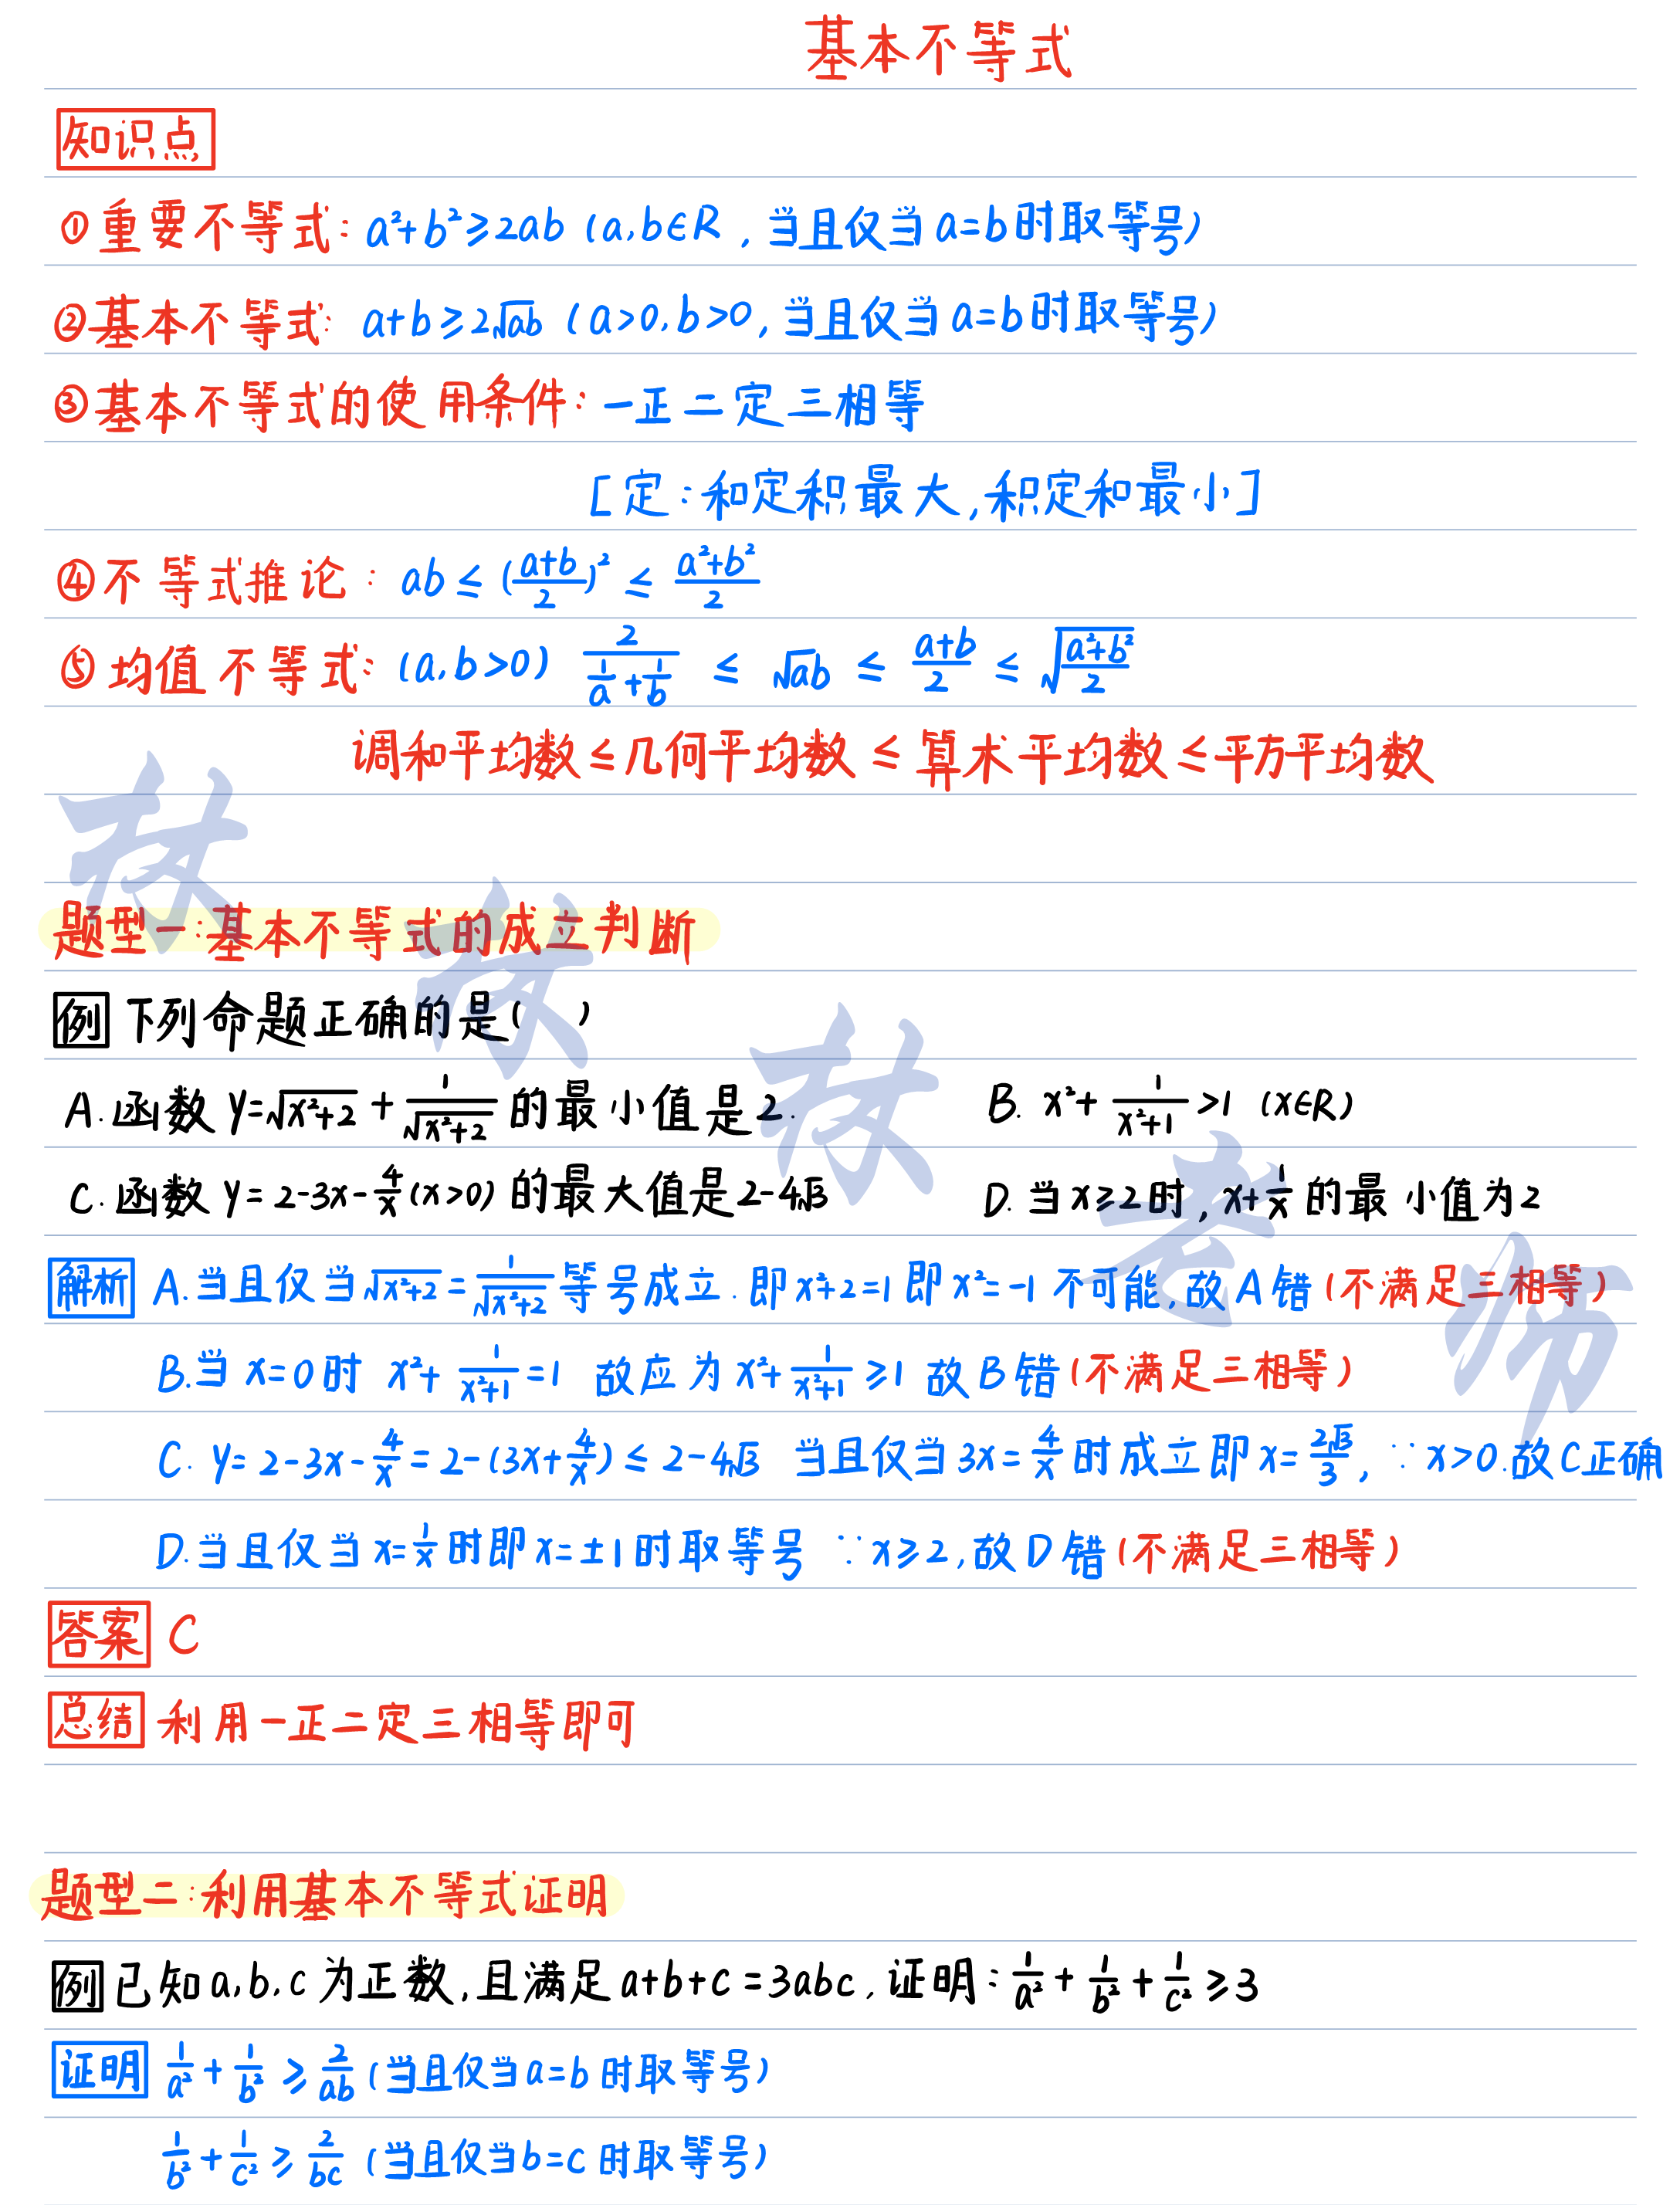 基本不等式
知识点
①重要不等式：a²+b²≥2ab（a,b∈R，当且仅当a=b时取等号）
②基本不等式：a+b≥2√ab（a>0,b>0,当且仅当a=b时取等号）
③基本不等式的使用条件：一正二定三相等
[定：和定积最大,积定和最小]
④不等式推论：ab≤((a+b)/2)²≤(a²+b²)/2
⑤均值不等式：(a,b>0) 2/(1/a+1/b) ≤ √ab ≤ (a+b)/2 ≤ √((a²+b²)/2)
调和平均数≤几何平均数≤算术平均数≤平方平均数
题型一：基本不等式的成立判断
例 下列命题正确的是( )
A.函数 y=√(x²+2)+1/√(x²+2) 的最小值是2. B. x²+1/(x²+1)>1 (x∈R)
C.函数 y=2-3x-4/x(x>0) 的最大值是2-4√3 D.当x≥2时,x+1/x的最小值为2
解析 A.当且仅当√(x²+2)=1/√(x²+2)等号成立.即x²+2=1即x²=-1不可能,故A错(不满足三相等)
B.当x=0时 x²+1/(x²+1)=1 故应为x²+1/(x²+1)≥1 故B错(不满足三相等)
C. y=2-3x-4/x=2-(3x+4/x)≤2-4√3 当且仅当3x=4/x时成立即x=2√3/3, ∵x>0.故C正确
D.当且仅当x=1/x时即x=±1时取等号 ∵x≥2,故D错(不满足三相等)
答案 C
总结 利用一正二定三相等即可
题型二：利用基本不等式证明
例 已知a,b,c为正数,且满足a+b+c=3abc,证明：1/a²+1/b²+1/c²≥3
证明 1/a²+1/b²≥2/ab(当且仅当a=b时取等号)
1/b²+1/c²≥2/bc(当且仅当b=c时取等号)
林林林老师